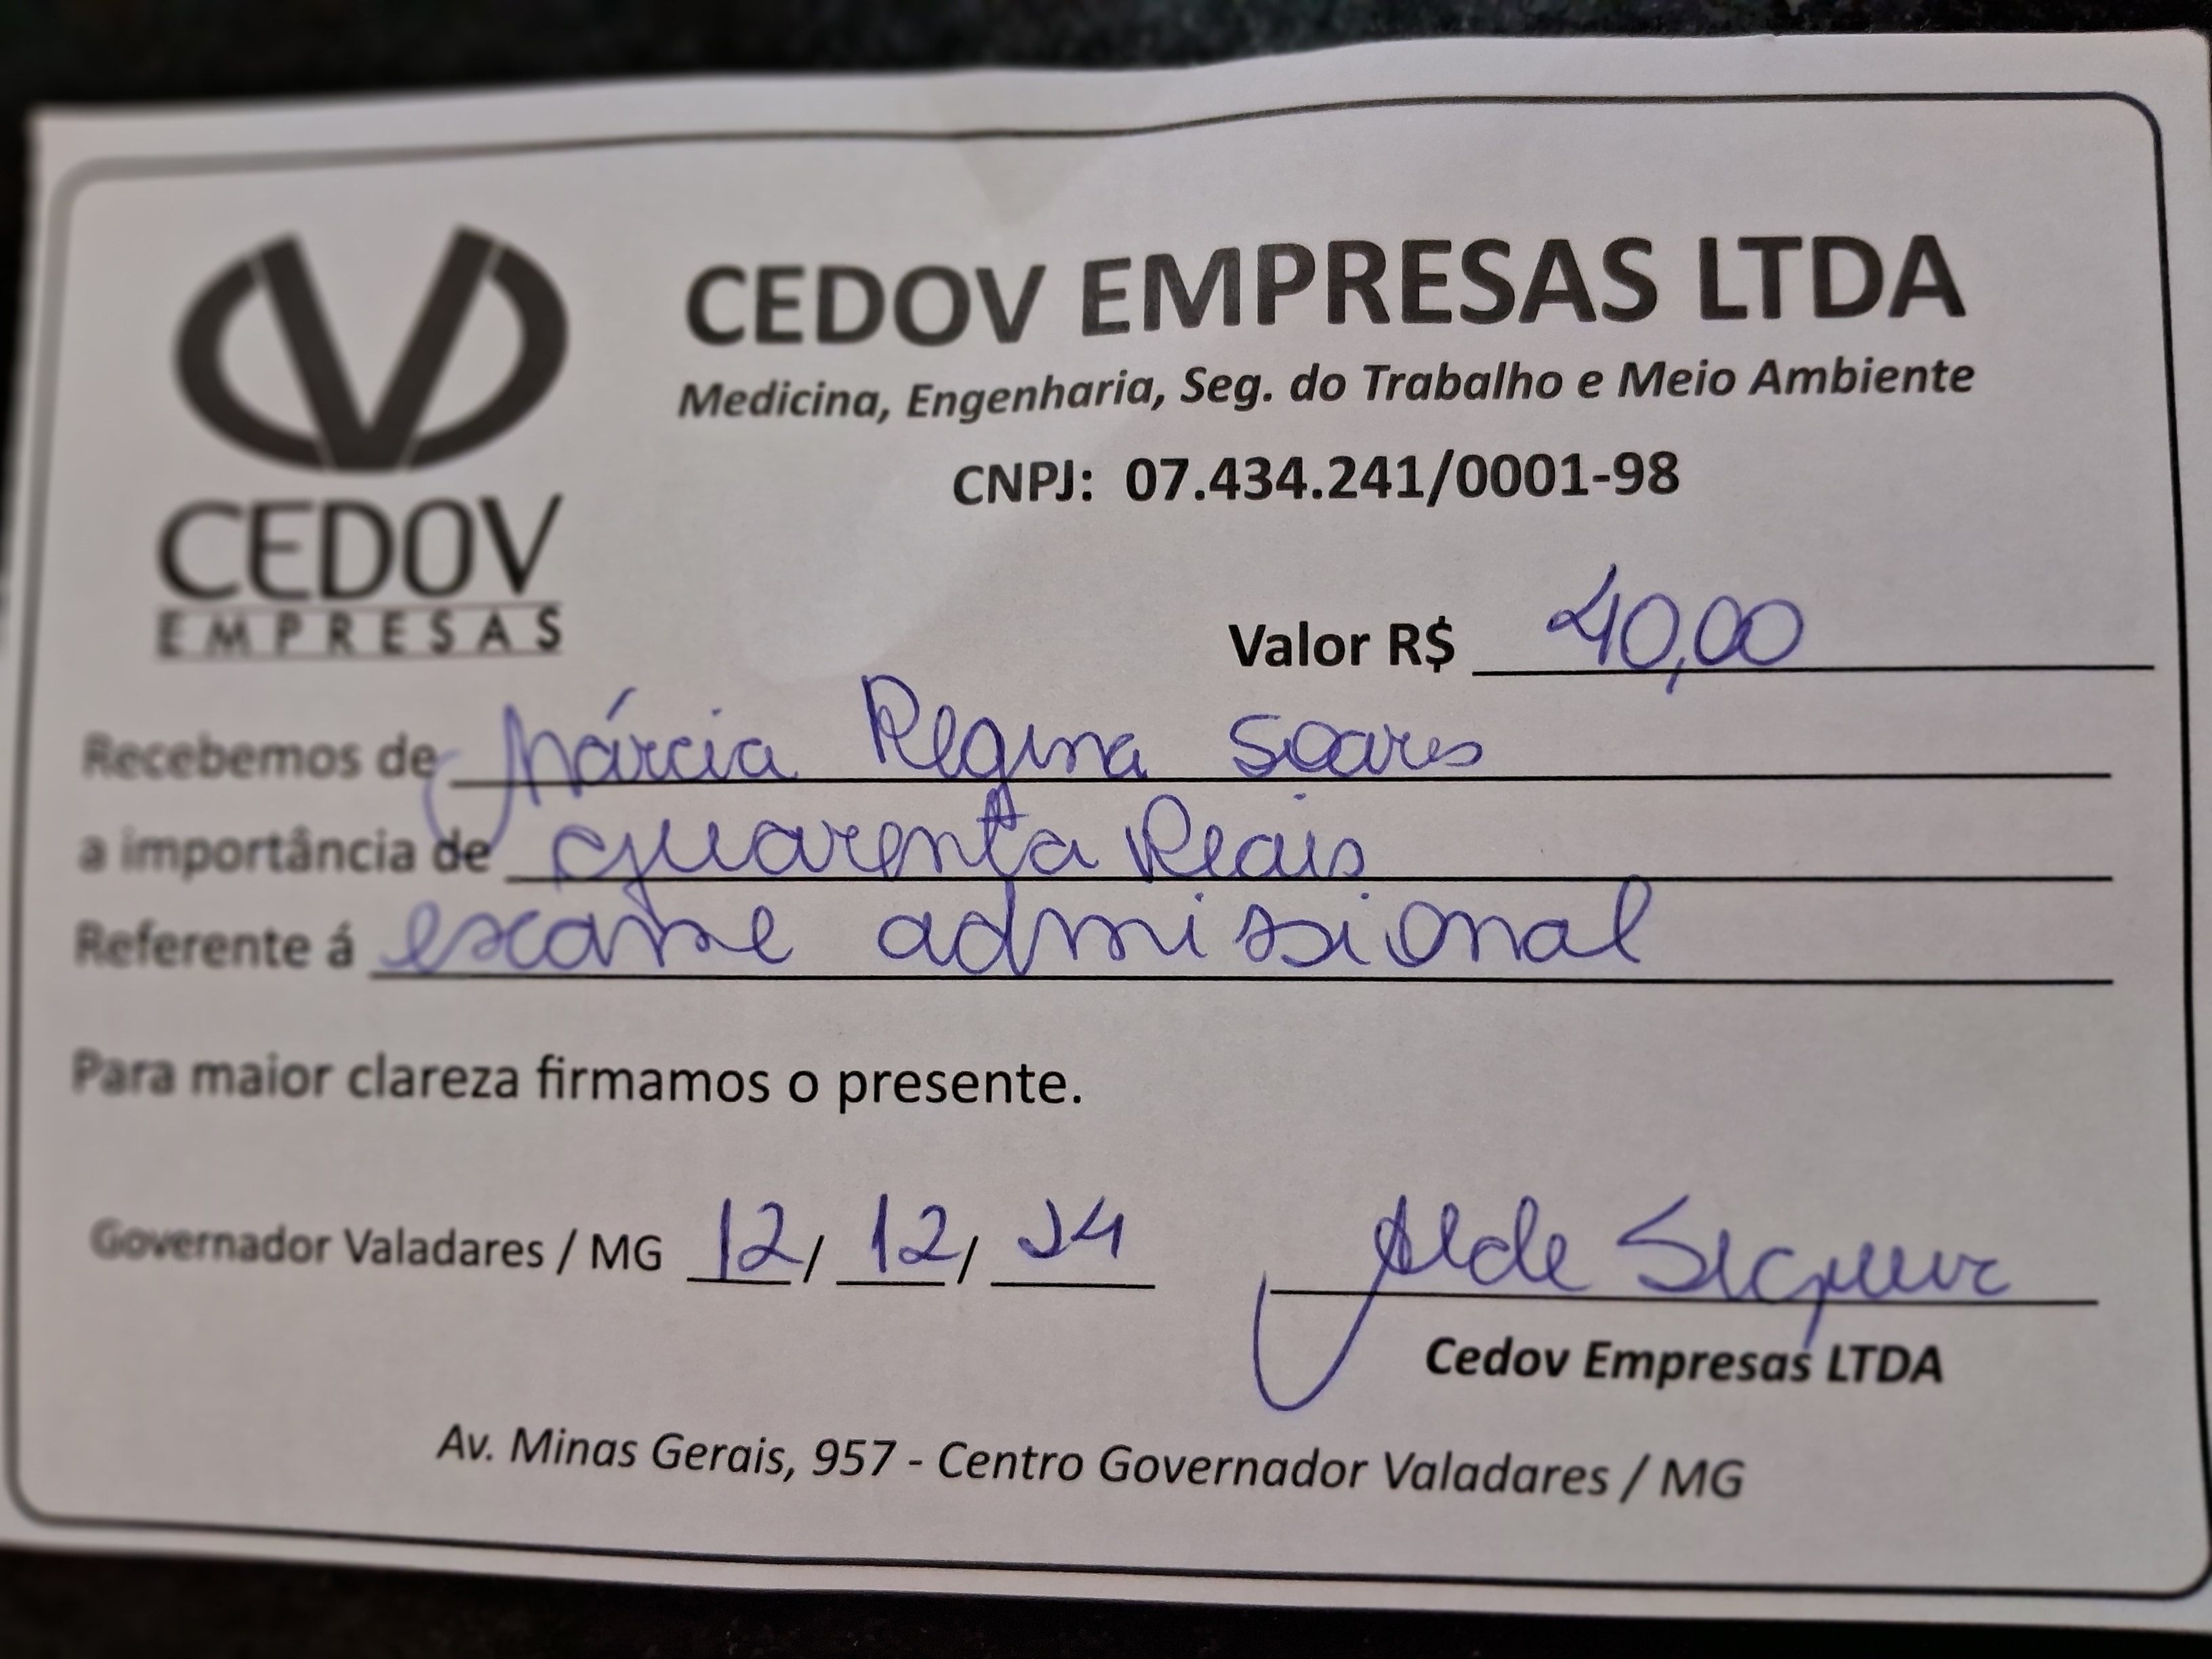 CEDOV EMPRESAS LTDA
Medicina, Engenharia, Seg. do Trabalho e Meio Ambiente
CNPJ: 07.434.241/0001-98
CEDOV
EMPRESAS
Valor R$ 40,00
Recebemos de Márcia Regina Soares
a importância de quarenta Reais
Referente á exame admissional
Para maior clareza firmamos o presente.
Governador Valadares / MG 12/12/24
Cedov Empresas LTDA
Av. Minas Gerais, 957 - Centro Governador Valadares / MG